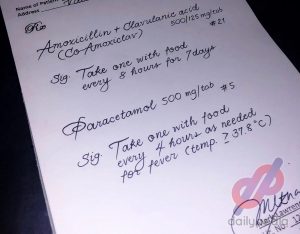 Name of Patient
Address
Rx
Amoxicillin + Clavulanic acid
(Co-Amoxiclav) 500/125mg/tab
#21
Sig: Take one with food
every 8 hours for 7days
Paracetamol 500 mg/tab #5
Sig: Take one with food
every 4 hours as needed
for fever (temp. ≥ 37.8°C)